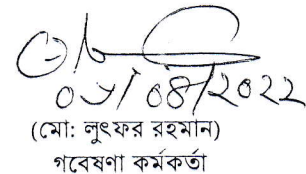 ০৮/০৪/২০২২
(মো: লুৎফর রহমান)
গবেষণা কর্মকর্তা